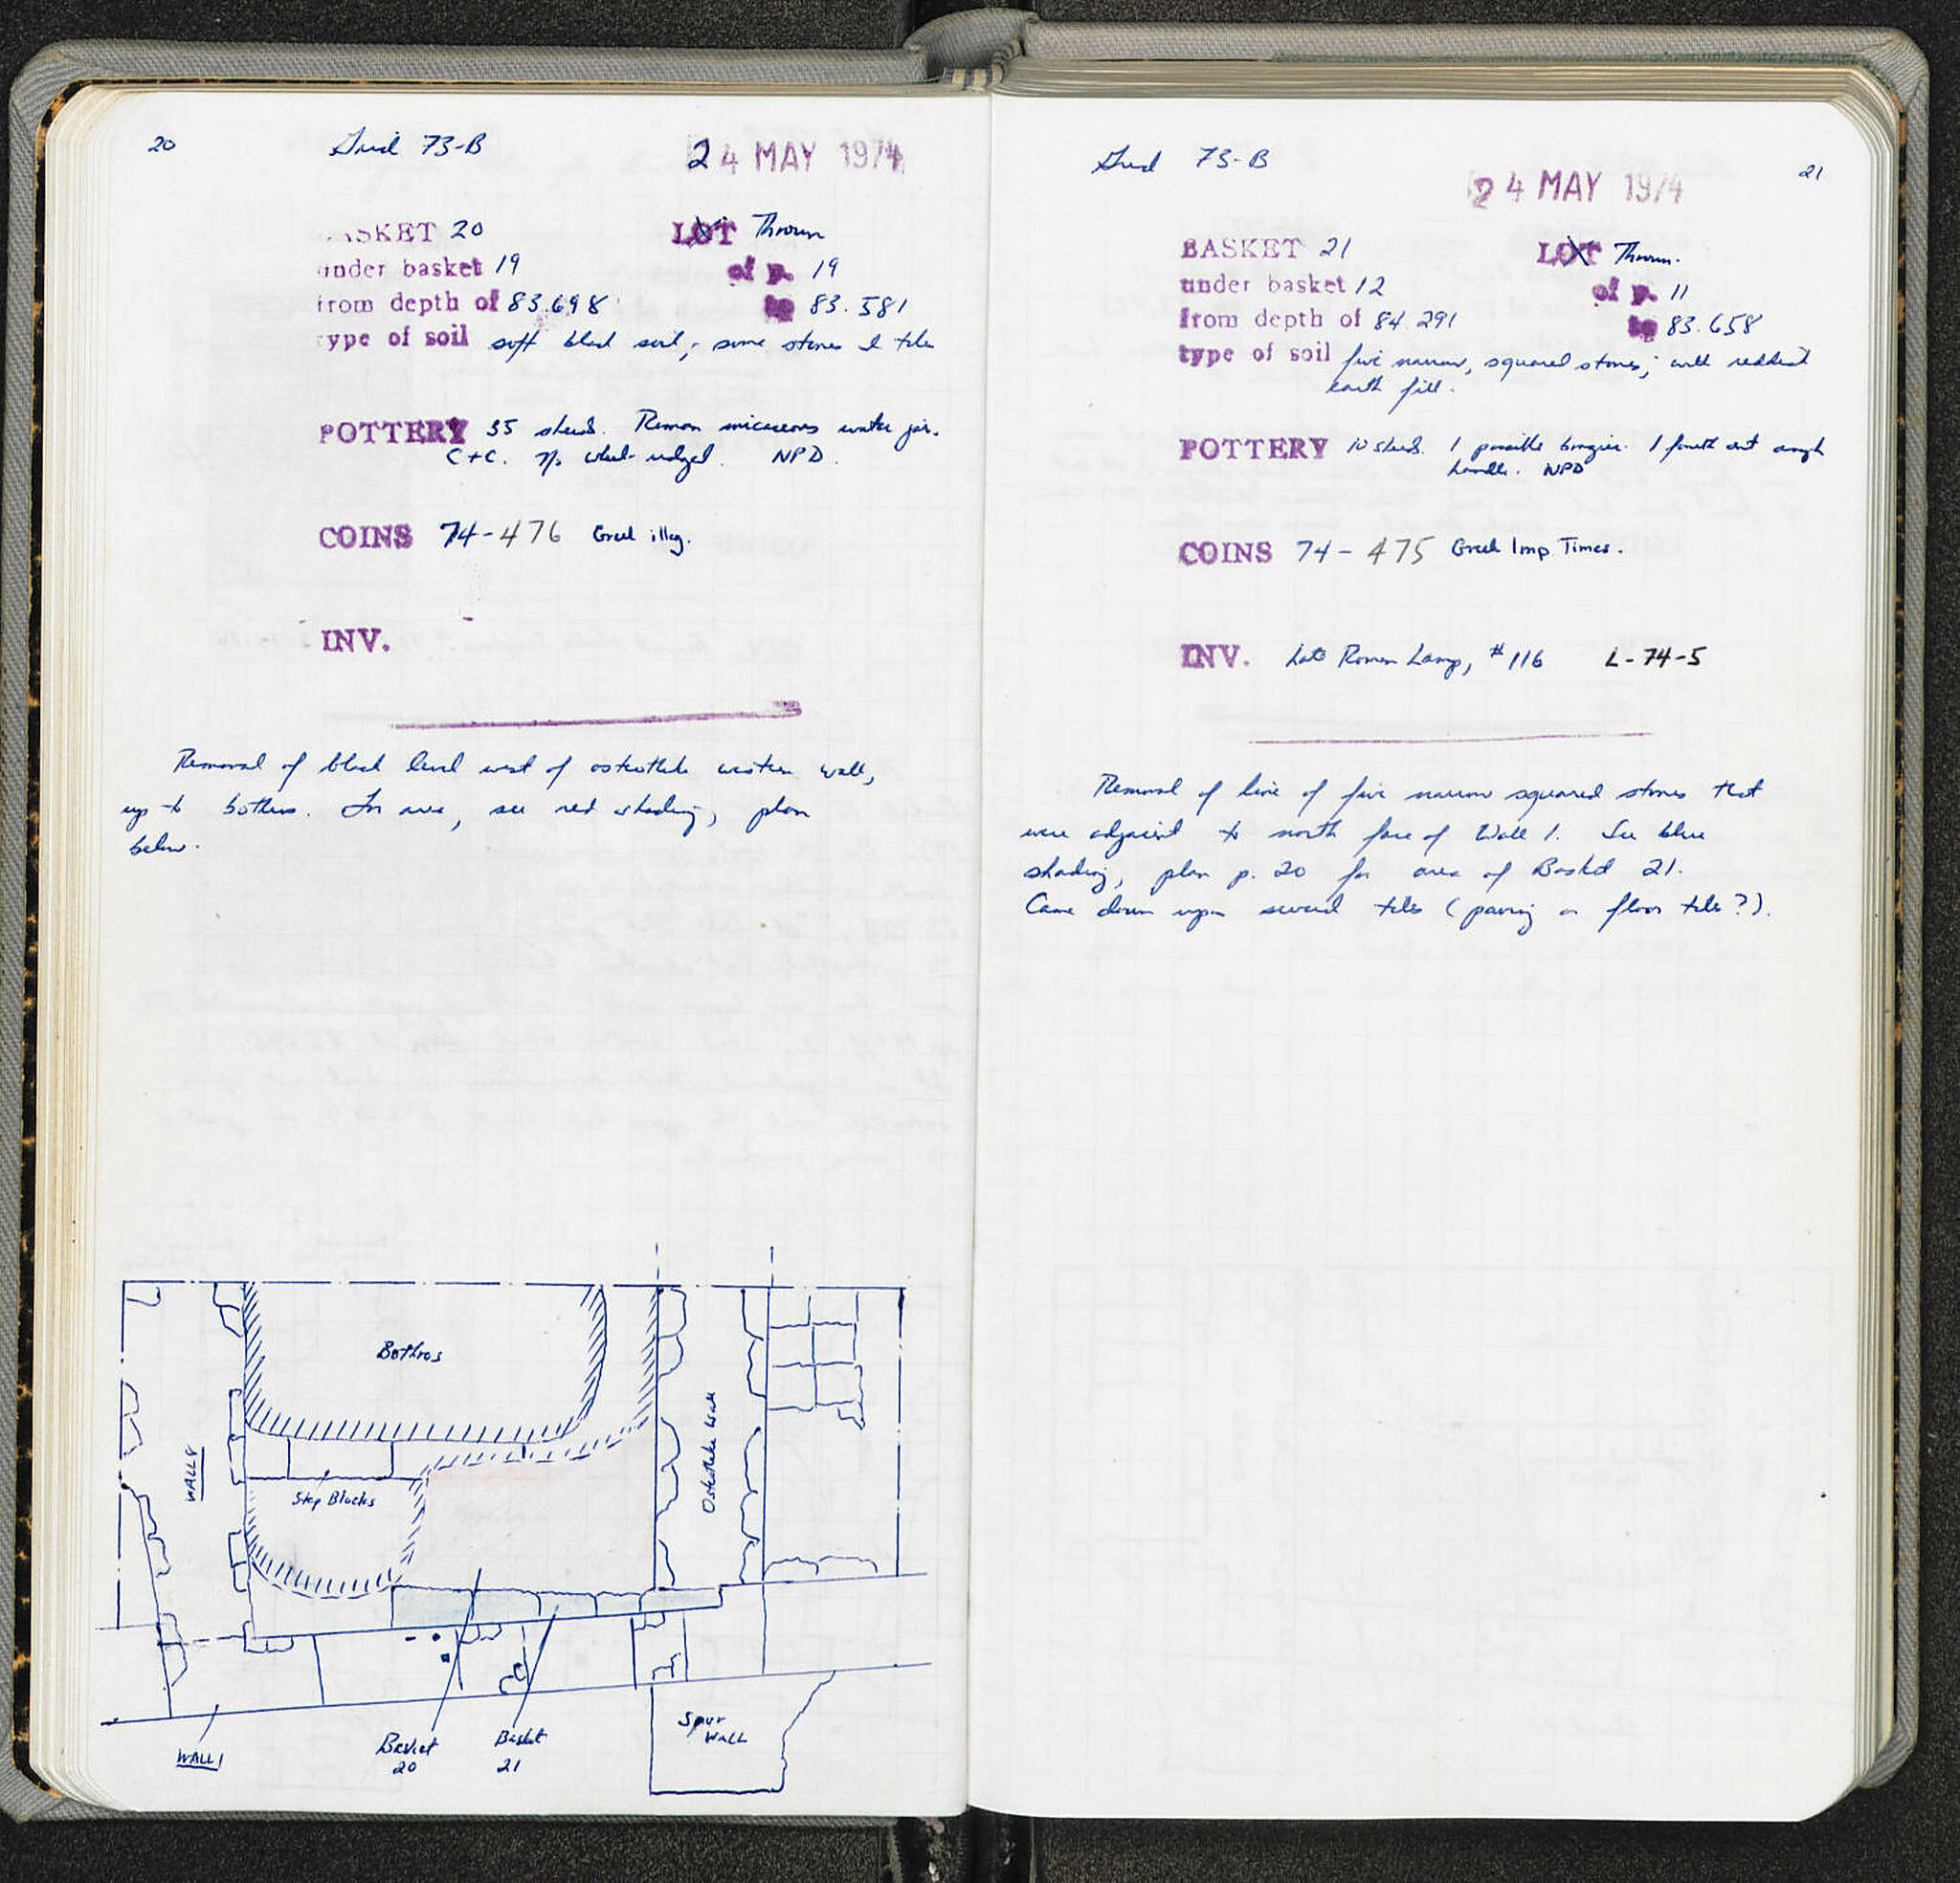 20 Grid 73-B 24 MAY 1974
BASKET 20 LOT Thrown
under basket 19 of p. 19
from depth of 83.698 to 83.581
type of soil soft black soil, some stones & tiles
POTTERY 35 sherds. Roman micaceous water jar.
C+C. wheel-ridged. NPD.
COINS 74-476 Greek illeg.
INV. -
Removal of black level west of osteotheke western wall,
up to bothros. For area, see red shading, plan
below.
Bothros
WALL 8
Step Blocks
Osteotheke Wall
WALL 1
Basket
20
Basket
21
Spur
WALL
Grid 73-B 21
24 MAY 1974
BASKET 21 LOT Thrown.
under basket 12 of p. 11
from depth of 84.291 to 83.658
type of soil five narrow, squared stones; with reddish
earth fill.
POTTERY 10 sherds. 1 possible brazier. 1 fourth cent amph
handle. NPD
COINS 74-475 Greek Imp Times.
INV. Late Roman Lamp, #116 L-74-5
Removal of line of five narrow squared stones that
were adjacent to north face of Wall 1. See blue
shading, plan p. 20 for area of Basket 21.
Came down upon several tiles (paving or floor tiles?).